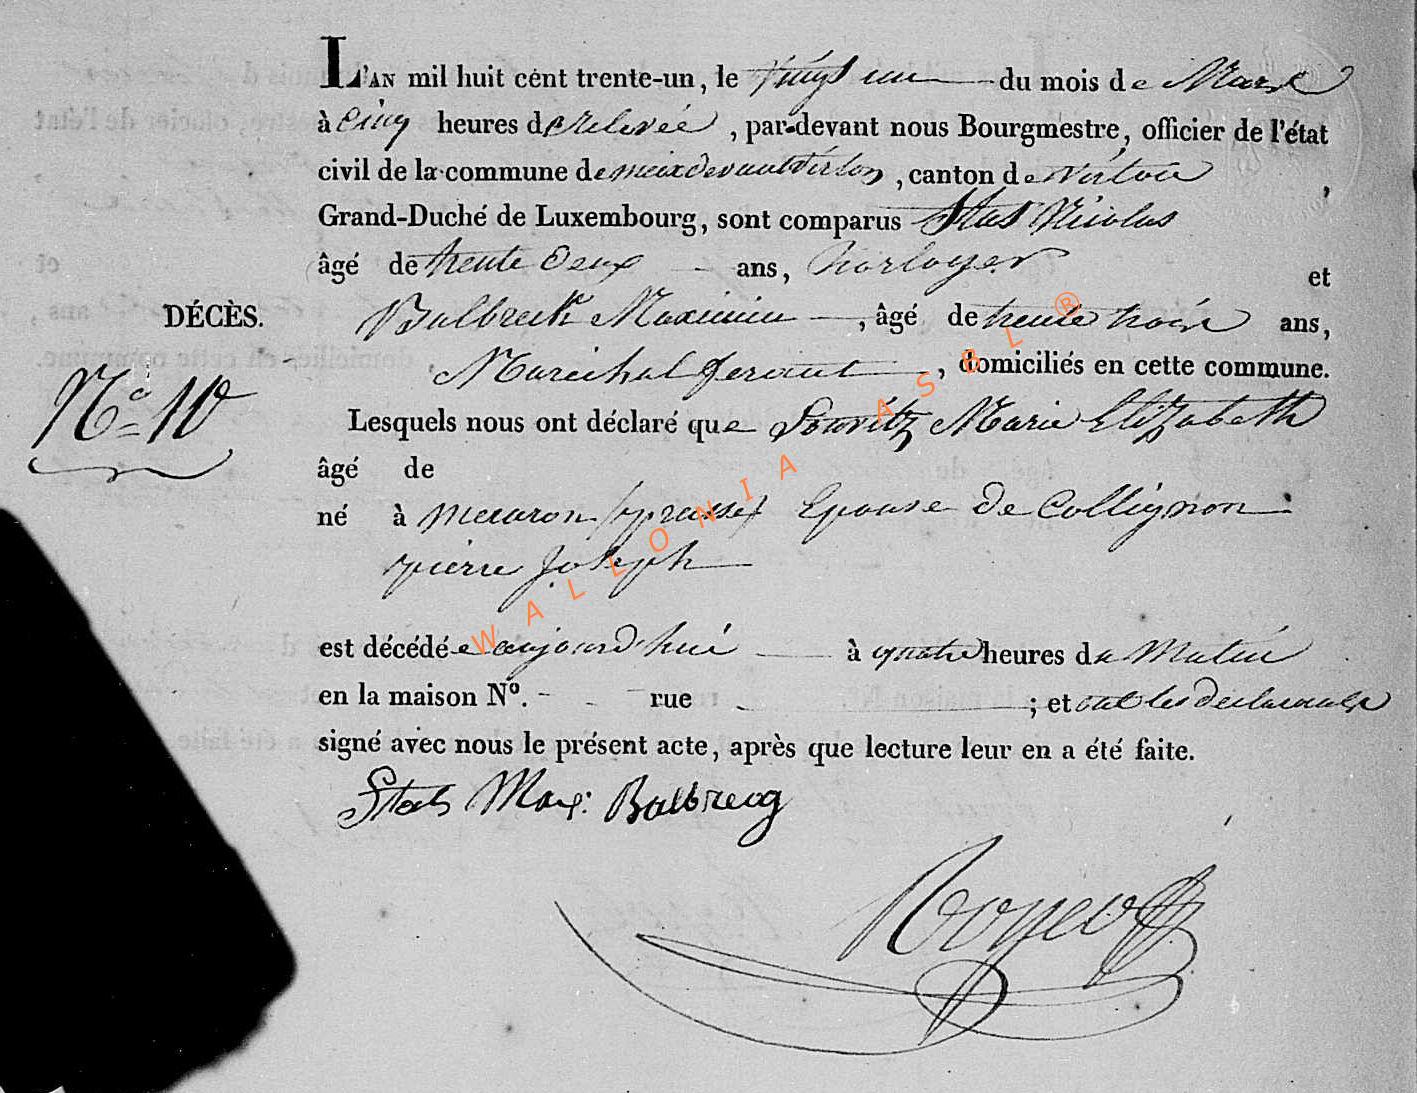 L'AN mil huit cént trente-un, le vingt un du mois de Mars
à Cinq heures de Relevée, par-devant nous Bourgmestre, officier de l'état
civil de la commune de meix devant Virton, canton de Virton,
Grand-Duché de Luxembourg, sont comparus Stas Nicolas
âgé de trente deux ans, horloger et
DÉCÈS.
Balbreck Maximin, âgé de trente trois ans,
Marechal ferant, domiciliés en cette commune.
Nº 10
Lesquels nous ont déclaré que Marie Elizabeth
âgé de
né à (prusse) Epouse de Collignon
pierre Joseph
est décédée aujourd'hui à quatre heures du Matin
en la maison Nº. - rue ; et ont les declarants
signé avec nous le présent acte, après que lecture leur en a été faite.
Stas Max: Balbrecq
WALLONIA ASBL ®